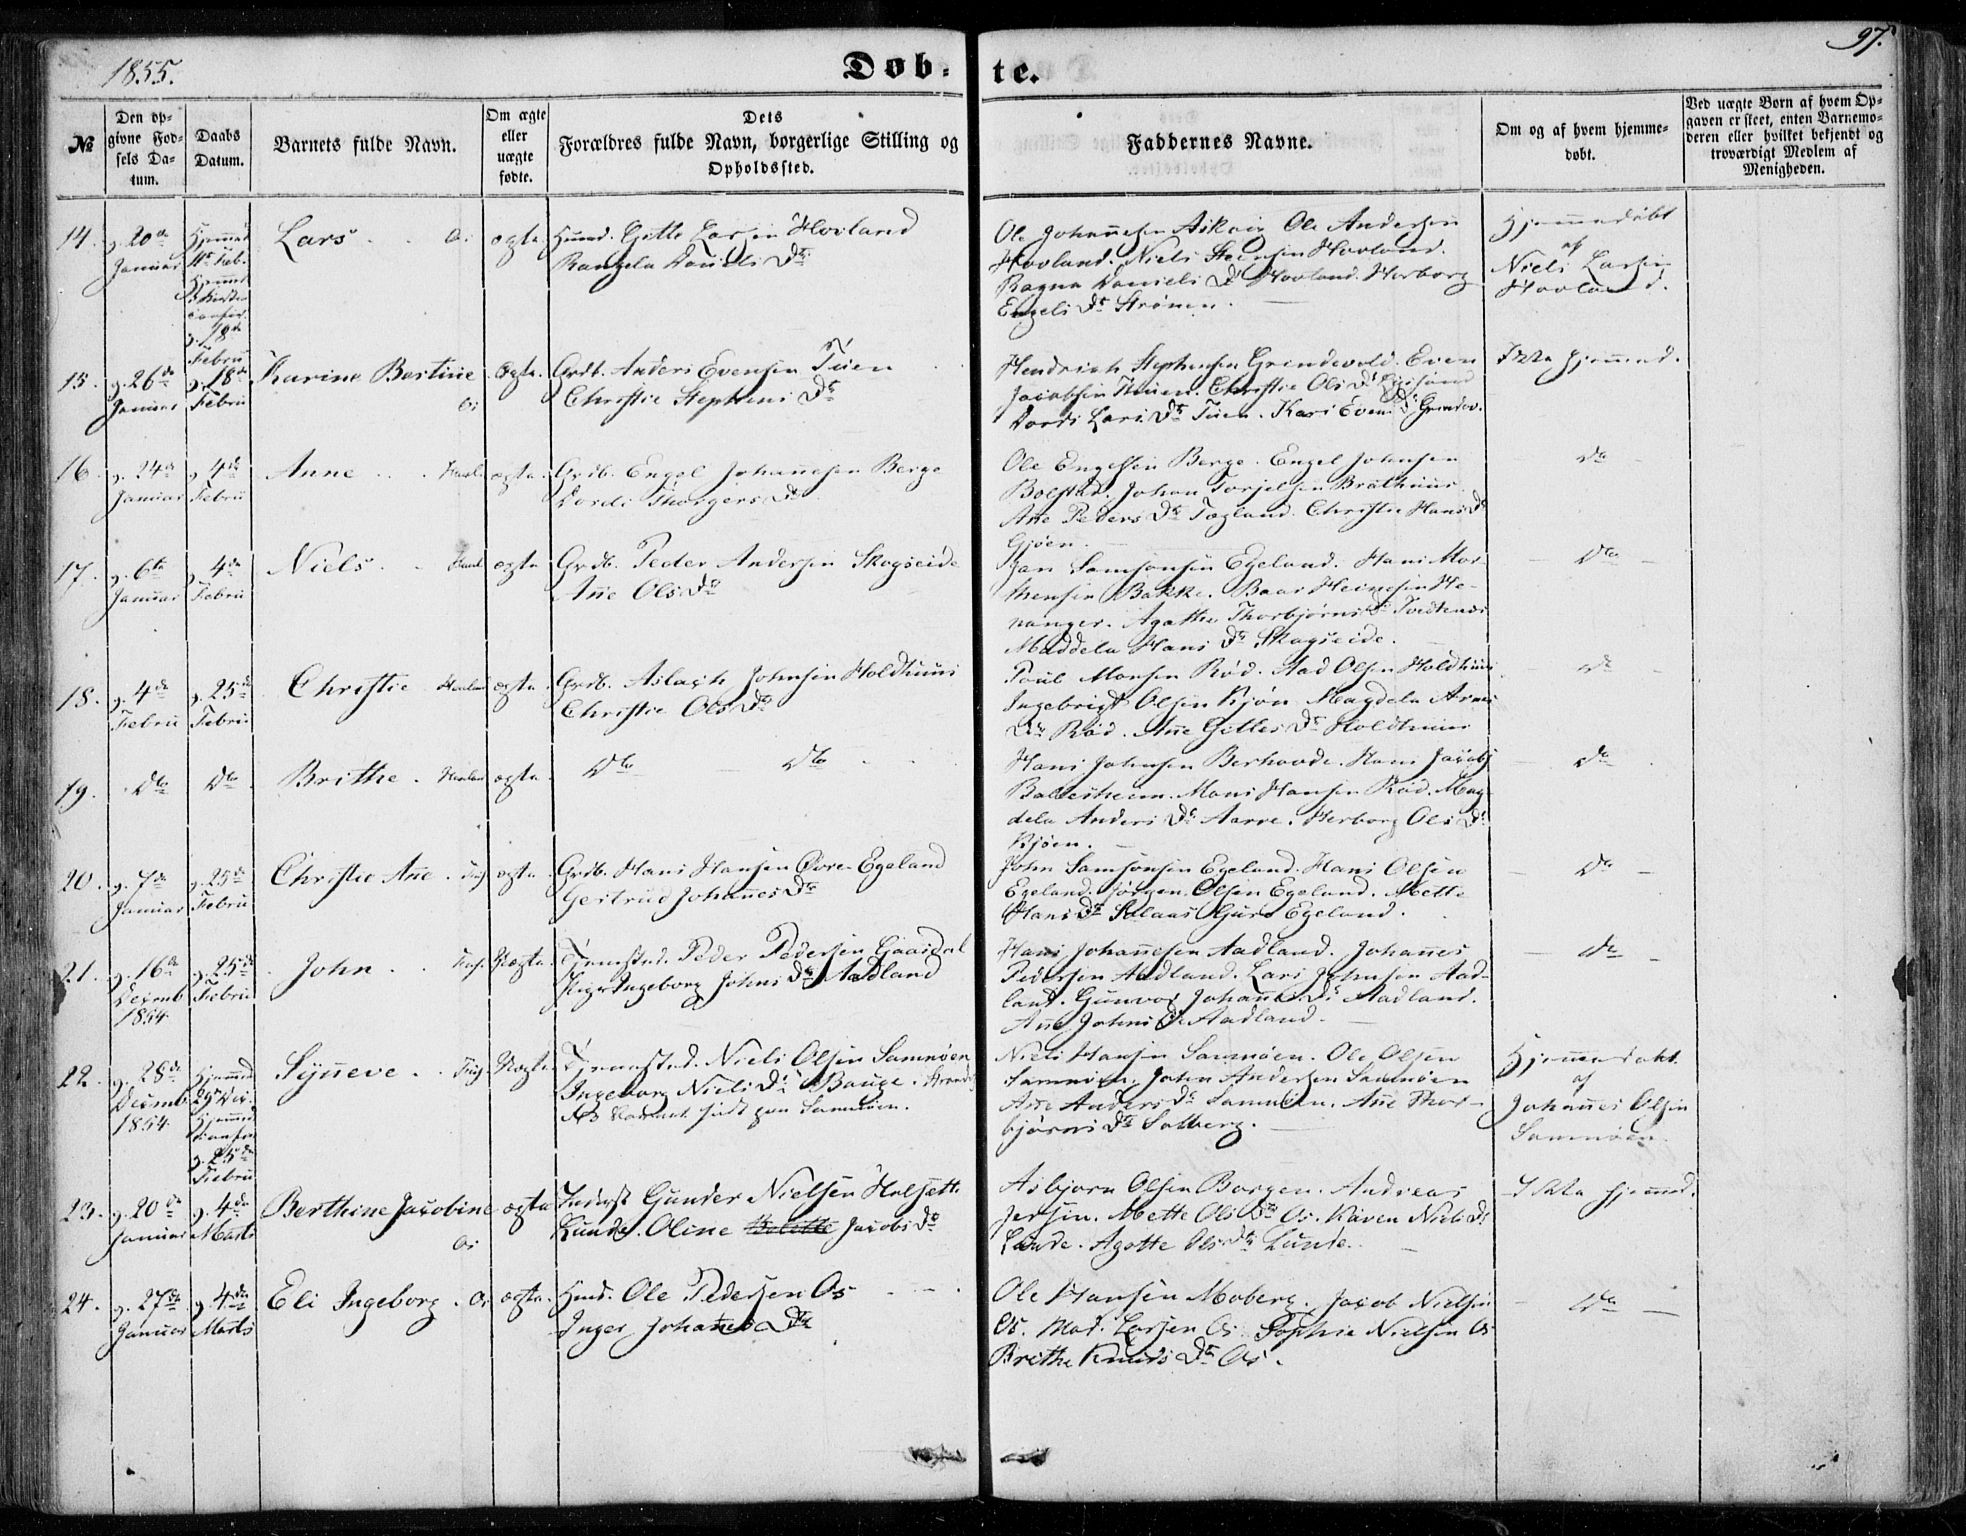 1855.
Døb-
te.
97.
№
Den op-
givne Fød-
sels Da-
tum.
Daabs
Datum.
Barnets fulde Navn.
Om ægte
eller
uægte
fødte.
Dets
Forældres fulde Navn, borgerlige Stilling og
Opholdssted.
Faddernes Navne.
Om og af hvem hjemme-
døbt.
Ved uægte Børn af hvem Op-
gaven er skeet, enten Barnemo-
deren eller hvilket bekjendt og
troværdigt Medlem af
Menigheden.
14.
g. 20de
Januar
Febr.
18de
Febru
Lars
Os
ægte
Huusm. Gitle Larsen Hovland
Daniels Dtr
Ole Johannesen Askvig Ole Andersen
Hovland. Niels Steensen Hovland.
Ragna Daniels Dr Hovland. Herborg
Engels Dr Strønen.
Hjemmedøbt
af
Niels Larsen
Hovland.
15.
g. 26de
Januar
g. 18de
Febru
Karine Bertine
Os
Ægte.
Grdb. Anders Evensen Tuen
Christie Stephens Dtr
Hendrich Stephensen Grindevold. Even
Jacobsen Tuen. Christie Ols Dr
Lars Dr Tuen. Kari Evens Dr Grindev.
Ikke hjemmed.
16.
g. 24de
Januar
g. 4de
Febru
Anne
ægte.
Grdb. Engel Johannesen Berge
Thorgers Dtr
Ole Engelsen Berge. Engel Johnsen
Bolstad. Johan Torjelsen Brathuus
Anne Peders Dr Tøgland. Christie Hans Dr
Gjøen.
Do
17.
g. 6te
Januar
g. 4de
Febru
Niels
ægte
Grdb. Peder Andersen Skogseide
Anne Ols Dtr
Jan Samsonsen Egeland. Hans Mor-
thensen Bakke. Baar Heinesen He-
nanger. Agathe Thorbjørns Dr
Maddela Hans Dr Skogseide.
Do
18.
g. 4de
Febru
g. 25de
Febru
Christie
ægte
Grdb. Aslach Johnsen Holdhuus
Christie Ols Dtr
Poul Monsen Rød. Aad Olsen Holdhuus
Ingebrigt Olsen Bjøen Magdela Arnes
Dtr Rød. Anne Gitles Dr Holdhuus
Do
19.
Do
Do
Brithe.
ægte
Do
Do
Hans Johnsen Berhovde. Hans Jacobs
Balesheim. Mons Hansen Rød. Mag-
dela Anders Dr Aarre. Herborg Ols Dr
Bjøen.
Do
20.
g. 7de
Januar
g. 25de
Febru
Christie Anne.
ægte.
Grdb. Hans Hansen Øvre Egeland
Gertrud Johannes Dtr
John Samsonsen Egeland. Hans Olsen
Egeland. Jørgen Olsen Egeland. Mette
Hans Dr Egeland.
Do
21.
g. 16de
Decemb
1854
g. 25de
Febru
John
Fus.
Uægte.
Tjenestkr. Peder Pedersen Gaasdal
Pige Ingeborg Johns Dtr Aadland
Hans Johannesen Aadland. Johannes
Pedersen Aadland. Lars Johnsen Aad-
land. Gunvor Johannes Dr Aadland.
Anne Johns Dr Aadland.
Do
22.
g. 28de
Decemb
1854
Hjemmed.
29de Dec.
g. 25de
Febru
Synneve.
Fus.
Uægte.
Tjenestkr. Niels Olsen Samnøen
Ingeborg Niels Dr Bauge.
født paa Samnøen.
Niels Hansen Samnøen. Ole Olsen
Samnøen. John Andersen Samnøen
Anne Anders Dr Samnøen. Anne Thor-
bjørns Dr Solberg.
Hjemmedøbt
af
Johannes Olsen
Samnøen.
23.
g. 20de
Januar
g. 4de
Marts
Berthine Jacobine
Os
ægte
Inderst Gunder Nielsen
Lunde. Oline Jacobs Dtr
Asbjørn Olsen Borgen. Andreas
Jensen. Mette Ols Dtr Os. Karen Niels Dr
Lunde. Agathe Ols Dtr Lunde.
Ikke hjemmed.
24.
g. 27de
Januar
g. 4de
Marts
Eli Ingeborg.
Os
ægte.
Husm. Ole Pedersen Os
Inger Johannes Dtr
Ole Hansen Moberg. Jacob Nielsen
Os. Mad. Larsen Os. Sophie Nielsen Os
Brithe Knuds Dtr Os.
Do